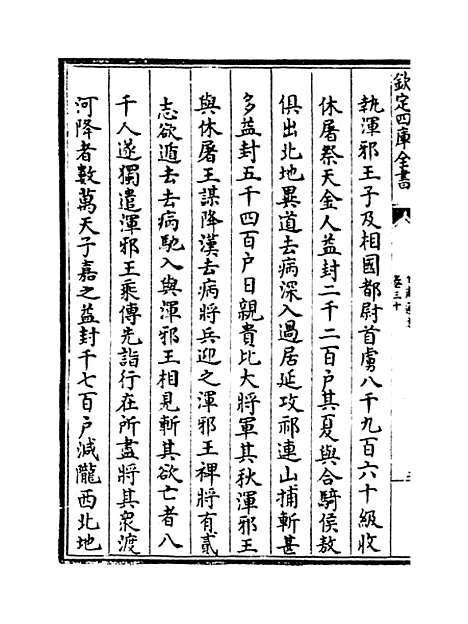 欽定四庫全書
卷三十
執渾邪王子及相國都尉首虜八千九百六十級收
休屠祭天金人益封二千二百户其夏與合騎侯敖
俱出北地異道去病深入過居延攻祁連山捕斬甚
多益封五千四百户日親貴比大將軍其秋渾邪王
與休屠王謀降漢去病將兵迎之渾邪王裨將有貳
志欲遁去去病馳入與渾邪王相見斬其欲亡者八
千人遂獨遣渾邪王乘傳先詣行在所盡將其衆渡
河降者數萬天子嘉之益封千七百户減隴西北地